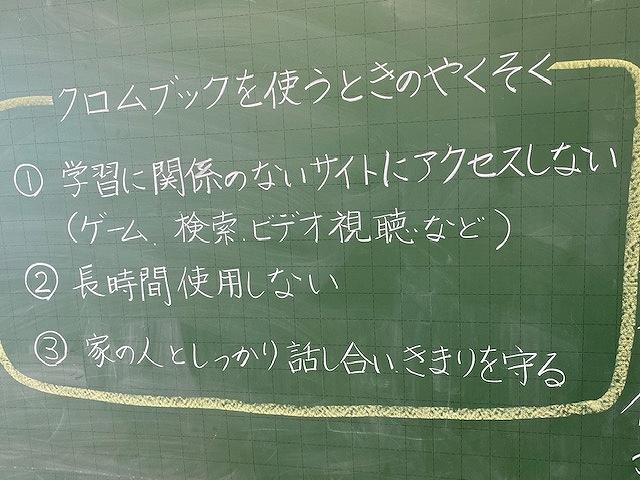 クロムブックを使うときのやくそく
① 学習に関係のないサイトにアクセスしない
(ゲーム、検索、ビデオ視聴、など)
② 長時間使用しない
③ 家の人としっかり話し合い、きまりを守る